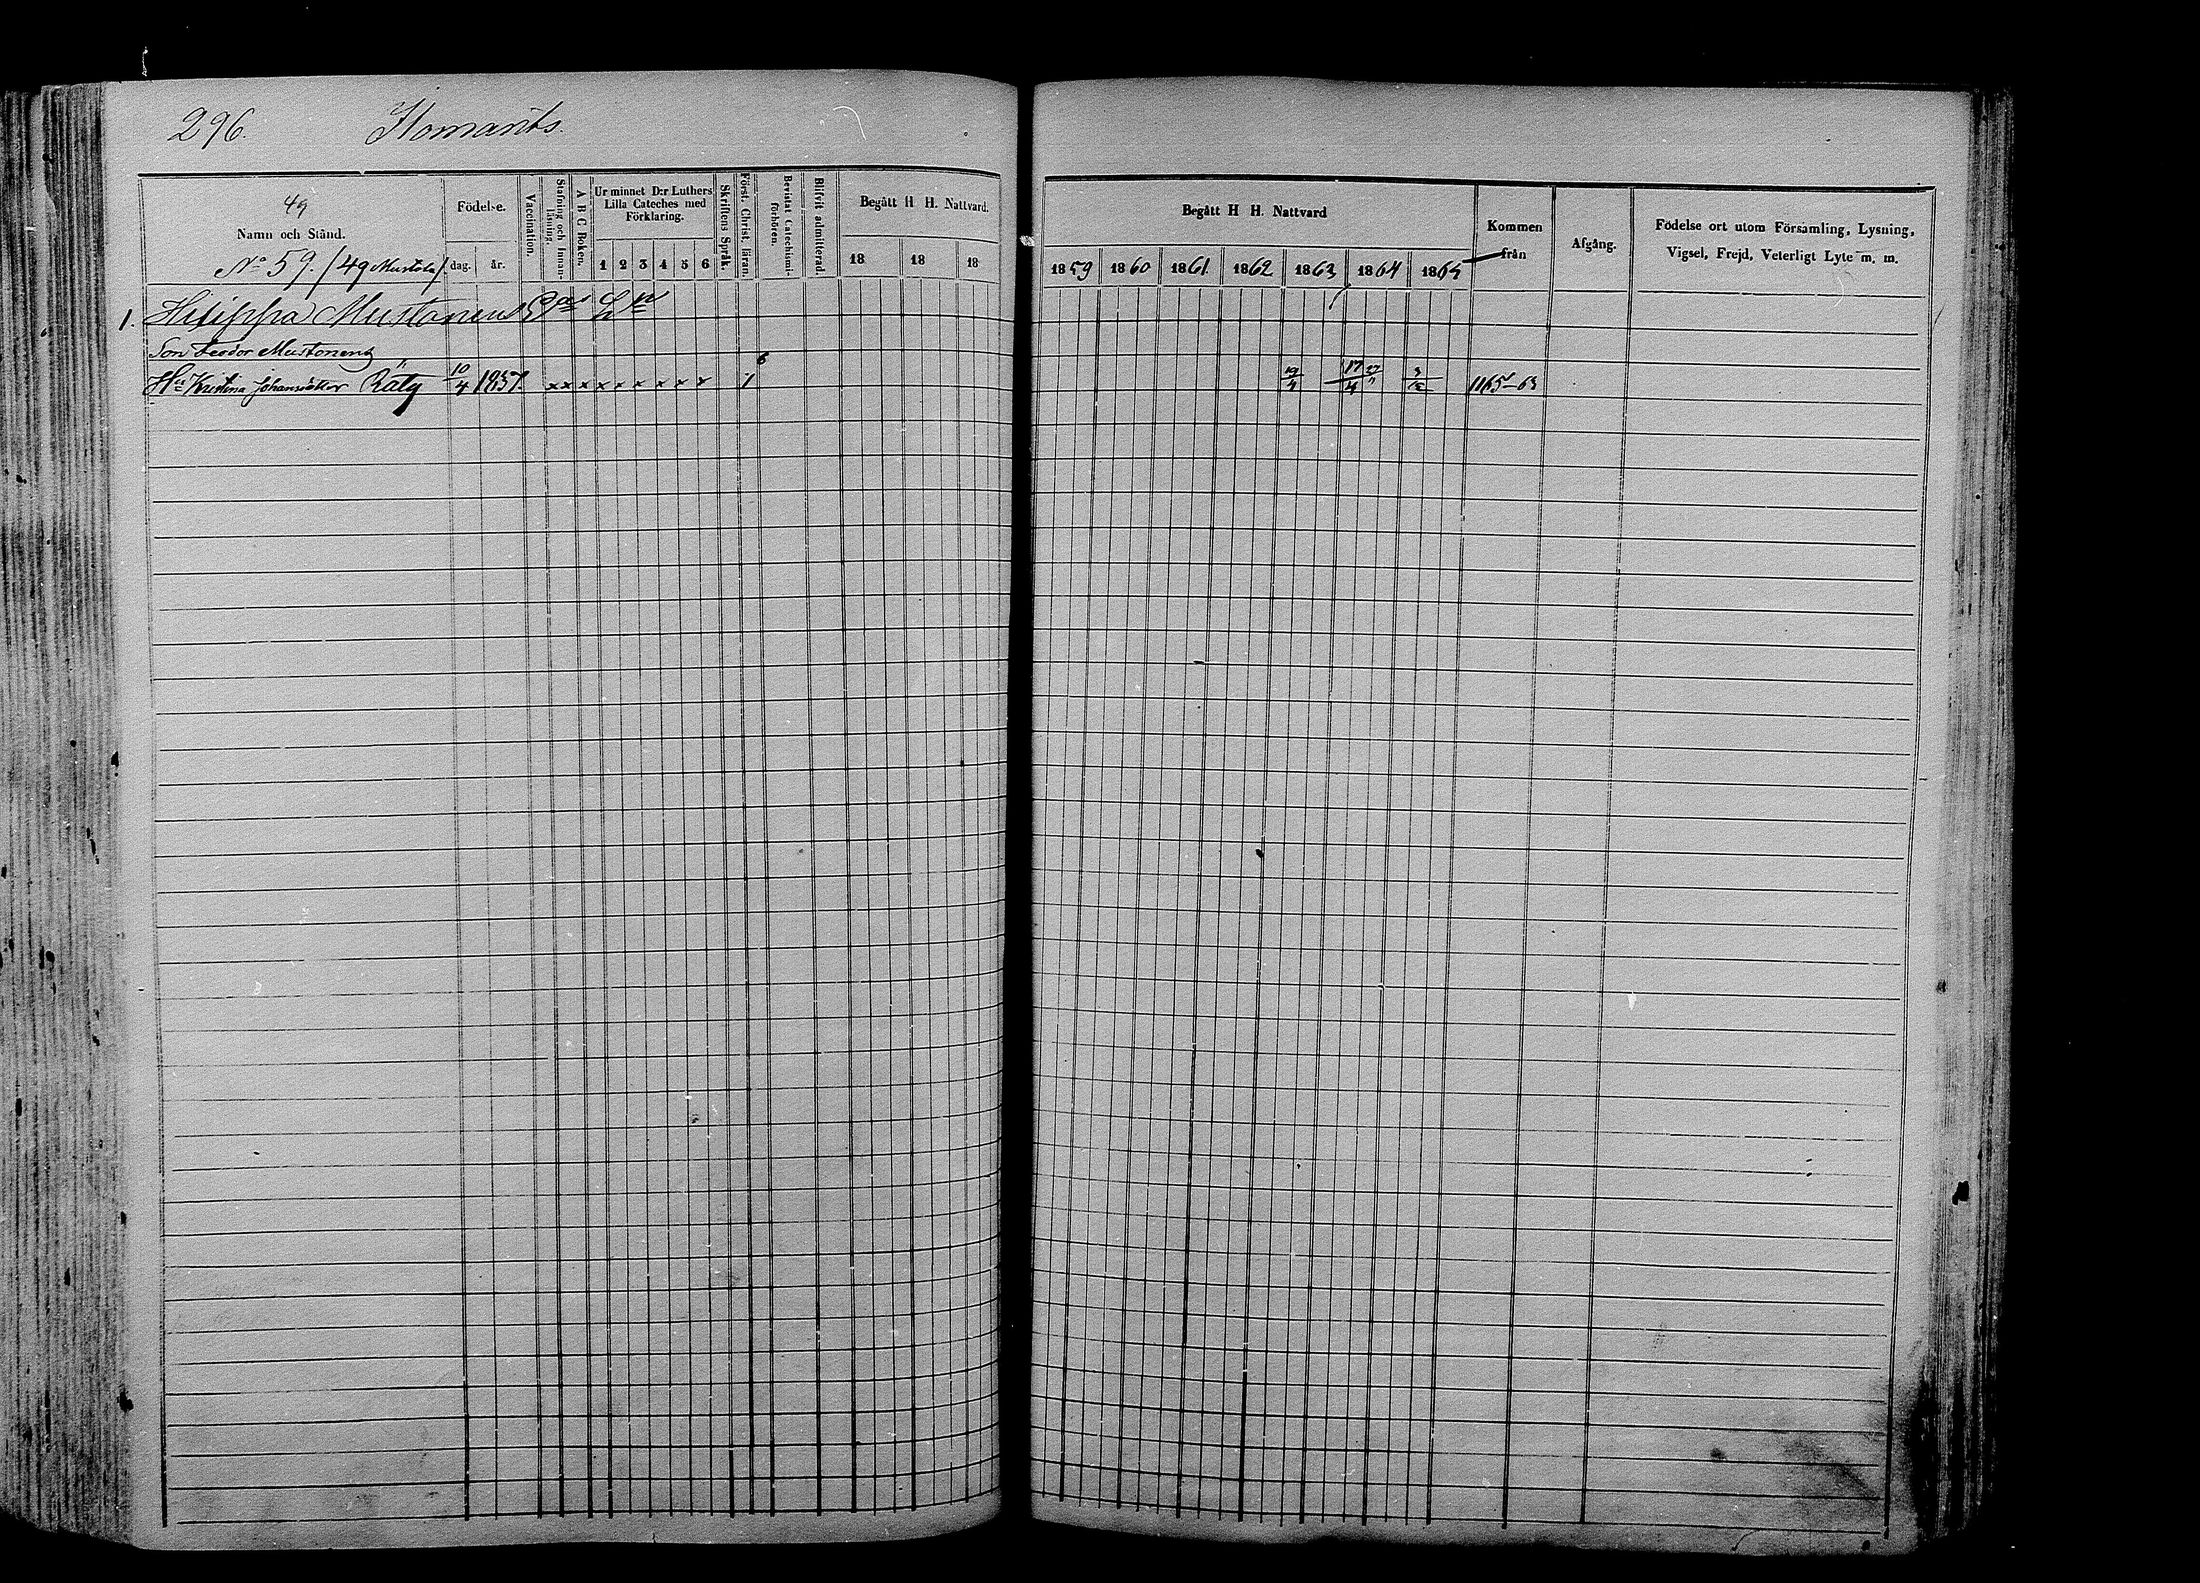 296. Ilomants.
49
Namn och Stånd.
No 59. /49 Mustola/.
Födelse.
dag. år.
Vaccination.
Stafning och Innanläsning.
A B C Boken.
Ur minnet D:r Luthers
Lilla Cateches med
Förklaring.
1 2 3 4 5 6
Skriftens Språk.
Först. Christ. läran.
Bevistat Catechismiförhören.
Blifvit admitterad.
Begått H. H. Nattvard.
18 18 18
Begått H. H. Nattvard
1859 1860 1861 1862 1863 1864 1865
Kommen
från
Afgång.
Födelse ort utom Församling, Lysning,
Vigsel, Frejd, Veterligt Lyte m. m.
1. Filippa Mustonens
Son Feodor Mustonens
Hu Kristina Johansdotter Räty 10/4 1837. x x x x x x x x x 1 6 19/4 17/4 27/" 3/12 1165-63